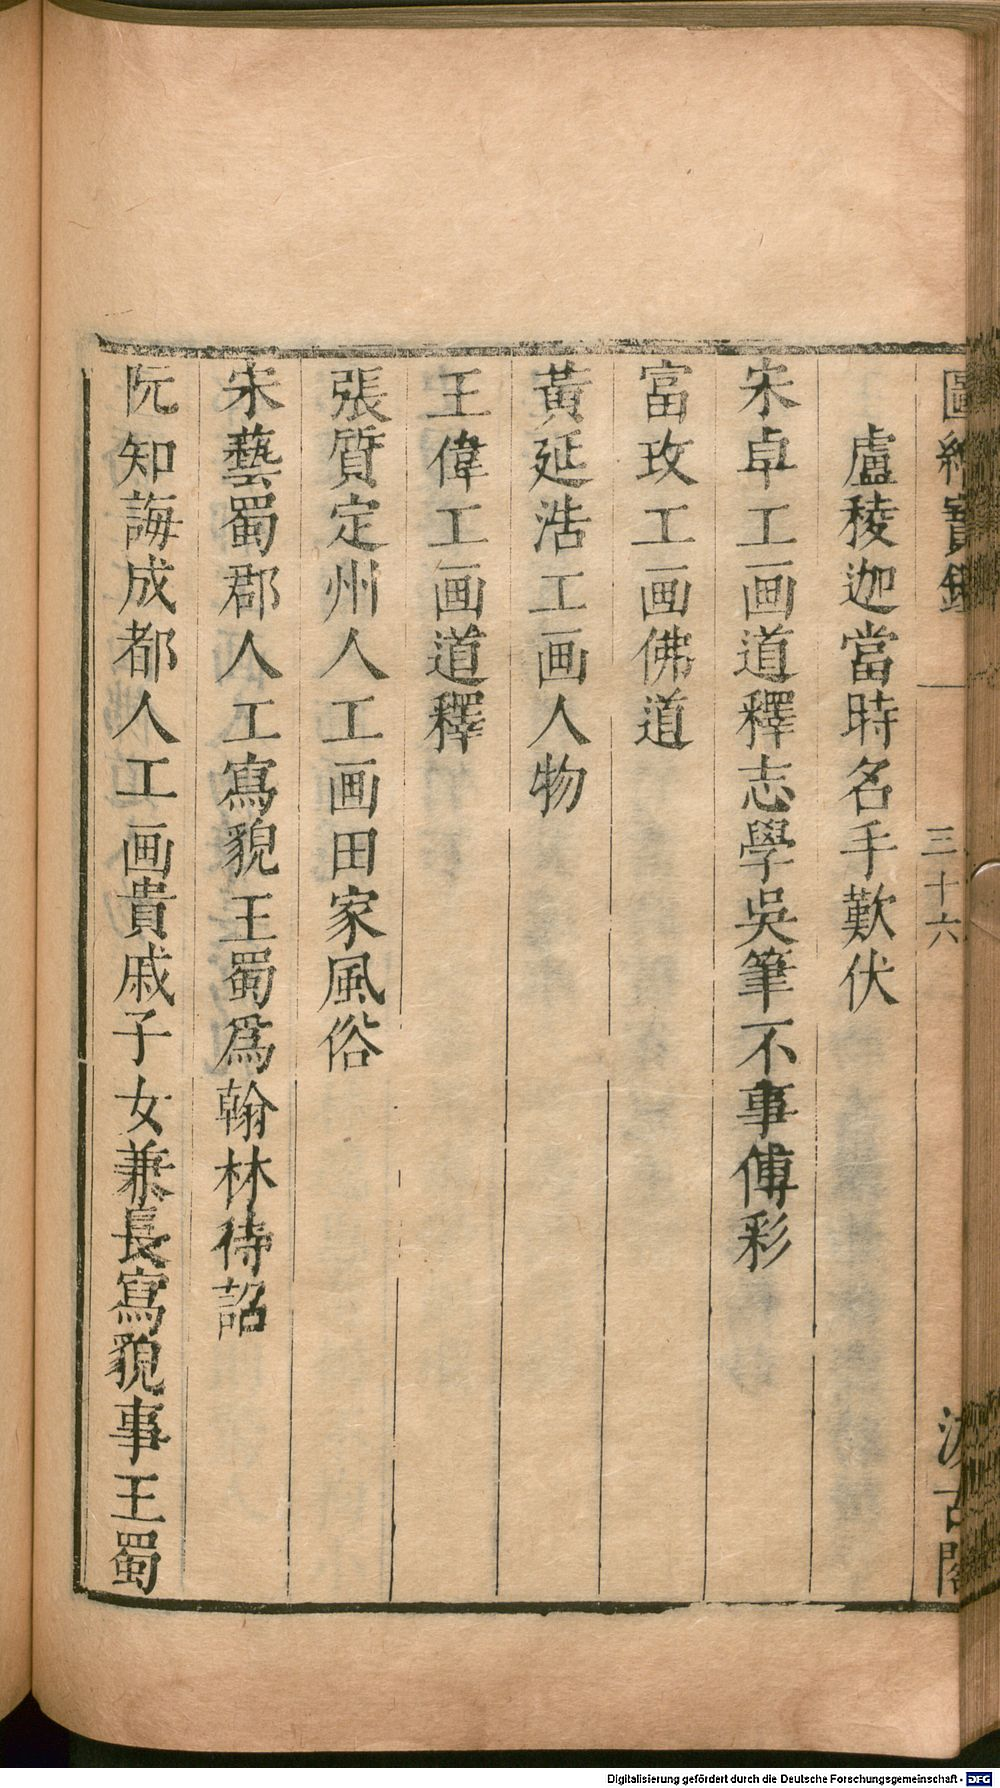 圖繪寶鑑
三十六
汲古閣
盧稜迦當時名手歎伏
宋卓工画道釋志學吳筆不事傅彩
富玫工画佛道
黃延浩工画人物
王偉工画道釋
張質定州人工画田家風俗
宋藝蜀郡人工寫貌王蜀爲翰林待詔
阮知誨成都人工画貴戚子女兼長寫貌事王蜀
Digitalisierung gefördert durch die Deutsche Forschungsgemeinschaft - DFG